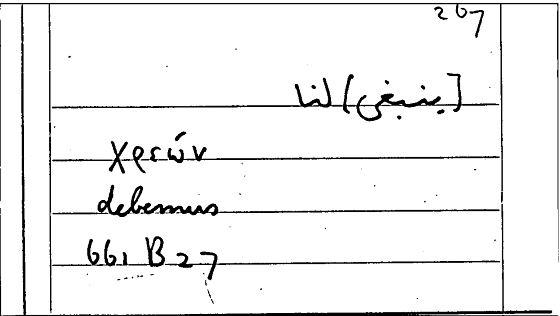 267
[ينبغي) لنا
χρεών
debemus
661 B 27